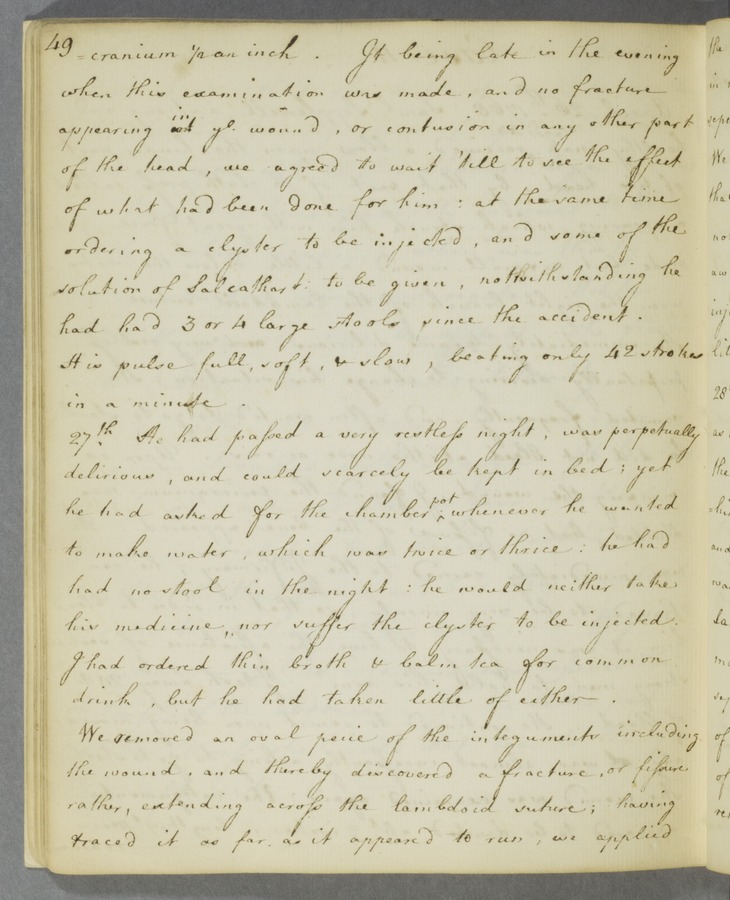 49
=cranium 1/2 an inch . It being late in the evening
when this examination was made, and no fracture
appearing in ye. wound, or contusion in any other part
of the head, we agreed to wait 'till to see the effect
of what had been done for him : at the same time
ordering a clyster to be injected, and some of the
solution of Sal cathart: to be given, notwithstanding he
had had 3 or 4 large stools since the accident.
His pulse full, soft, & slow, beating only 42 strokes
in a minute .
27th. He had passed a very restless night, was perpetually
delirious, and could scarcely be kept in bed ; yet
he had asked for the chamber pot whenever he wanted
to make water, which was twice or thrice : he had
had no stool in the night : he would neither take
his medicine, nor suffer the clyster to be injected.
I had ordered thin broth & balm tea for common
drink, but he had taken little of either .
We removed an oval peice of the integuments including
the wound, and thereby discovered a fracture, or fissure
rather, extending across the lambdoid suture ; having
traced it as far as it appeared to run, we applied